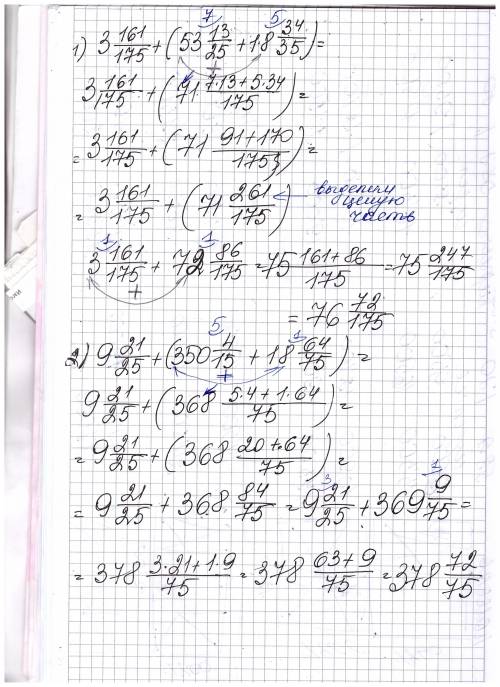 7 5
1) 3 161/175 + (53 13/25 + 18 34/35) =
+
3 161/175 + (71 7·13+5·34/175) =
= 3 161/175 + (71 91+170/175) =
= 3 161/175 + (71 261/175) ← выделили целую часть
1 1
3 161/175 + 72 86/175 = 75 161+86/175 = 75 247/175
+
= 76 72/175
5 1
2) 9 21/25 + (350 4/15 + 18 64/75) =
+
9 21/25 + (368 5·4+1·64/75) =
= 9 21/25 + (368 20+64/75) =
3 1
= 9 21/25 + 368 84/75 = 9 21/25 + 369 9/75 =
= 378 3·21+1·9/75 = 378 63+9/75 = 378 72/75